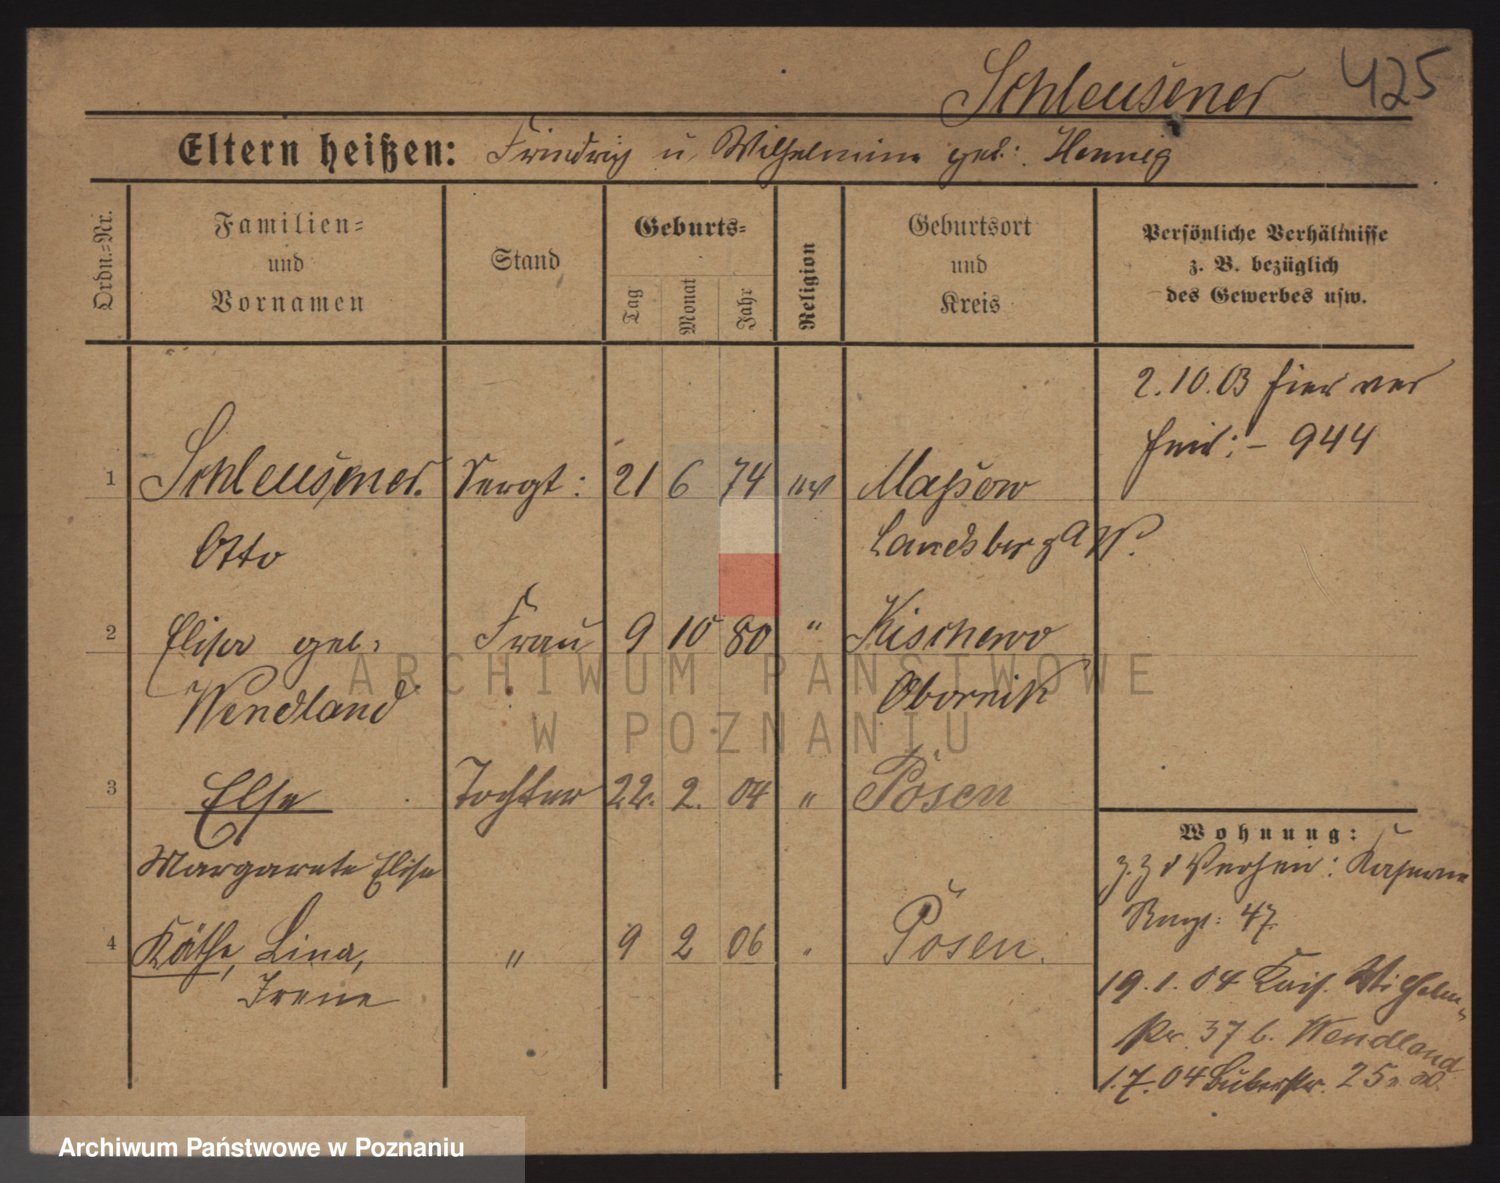 Schleusener 425
Eltern heißen: Friedrich u. Wilhelmine geb: Hennig
Ordn.=Nr.
Familien=
und
Vornamen
Stand
Geburts=
Tag
Monat
Jahr
Religion
Geburtsort
und
Kreis
Persönliche Verhältnisse
z. B. bezüglich
des Gewerbes usw.
2.10.03 hier ver
heir: – 944
1 Schleusener. Sergt: 21 6 74 ev Maßow
Otto Landsberg a W.
2 Elisa geb: Frau 9 10 80 " Kischewo
Wendland Obornik
3 Else Tochter 22. 2. 04 " Posen
Margarete Elise
4 Käthe, Lina, " 9 2 06 " Posen.
Irene
Wohnung:
z. Z d Verheir: Kaserne
Regt: 47.
19.1.04 Kais. Wilhelm-
str. 37 b. Wendland
1.7.04 25
ARCHIWUM PAŃSTWOWE
W POZNANIU
Archiwum Państwowe w Poznaniu